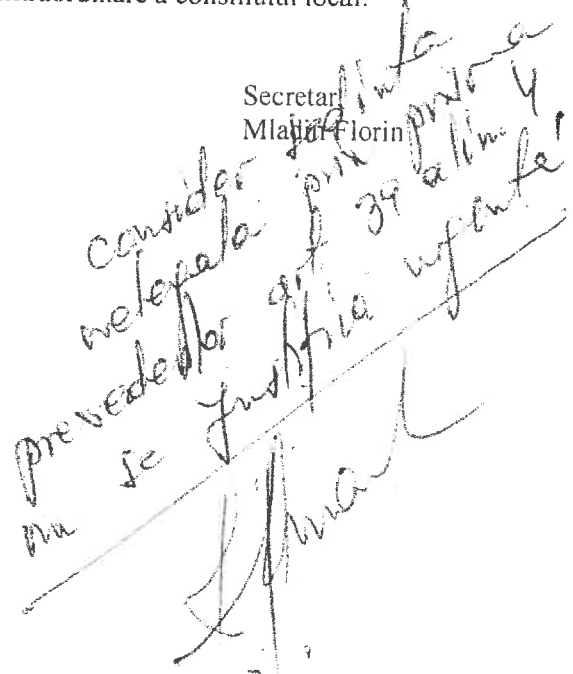 extraordinare a consiliului local.
Secretar
Mladin Florin
consider ședința
nelegală prin prisma
prevederilor art 39 alin. 4
nu se justifică urgența!